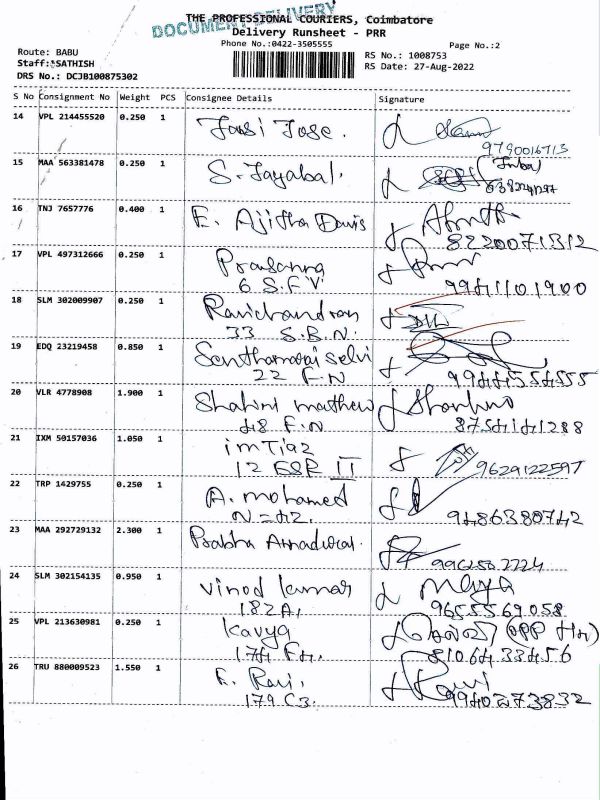 THE PROFESSIONAL COURIERS, Coimbatore
DOCUMENT DELIVERY
Delivery Runsheet - PRR
Phone No.:0422-3505555
Page No.:2
Route: BABU
RS No.: 1008753
Staff: SATHISH
RS Date: 27-Aug-2022
DRS No.: DCJB100875302
S No Consignment No Weight PCS Consignee Details Signature
14 VPL 214455520 0.250 1 Jose.
9790016713
15 MAA 563381478 0.250 1 S. Jayabal.
16 TNJ 7657776 0.400 1 E. Ajitha Davis
8220071312
17 VPL 497312666 0.250 1 Prasanna
6 S.F.V. 9941101900
18 SLM 302009907 0.250 1 Ravichandran
33 S.B.N.
19 EDQ 23219458 0.850 1 Senthamarai selvi
22 F.N 9944554555
20 VLR 4778908 1.900 1 Shalini mathew
48 F.N 8754141288
21 IXM 50157036 1.050 1 imTiaz
12 II 9629122597
22 TRP 1429755 0.250 1 A. mohamed
N=42. 9486380742
23 MAA 292729132 2.300 1 Prabha
24 SLM 302154135 0.950 1 Vinod kumar Maya
182A, 9655569058
25 VPL 213630981 0.250 1 Kavya
174 8106433456
26 TRU 880009523 1.550 1 E. Ravi. Ravi
179 C3. 9940273832